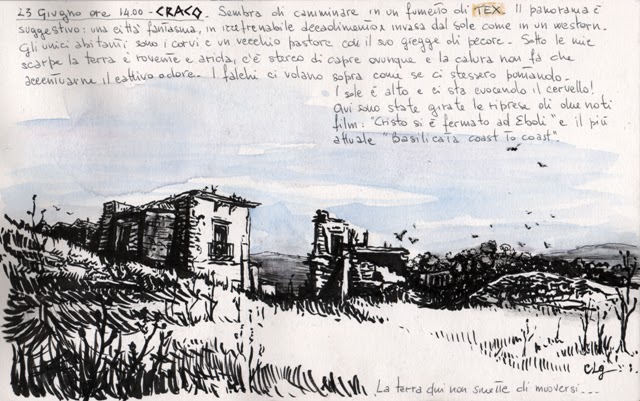 23 Giugno ore 14.00 - CRACO. Sembra di camminare in un fumetto di TEX. Il panorama è
suggestivo: una città fantasma, in irrefrenabile decadimento e invasa dal sole come in un western.
Gli unici abitanti sono i corvi e un vecchio pastore con il suo gregge di pecore. Sotto le mie
scarpe la terra è rovente e arida, c'è sterco di capre ovunque e la calura non fa che
accentuarne il cattivo odore. I falchi ci volano sopra come se ci stessero
Il sole è alto e ci sta evocando il cervello!
Qui sono state girate le riprese di due noti
film: "Cristo si è fermato ad Eboli" e il più
attuale "Basilicata coast to coast".
CLg
La terra qui non smette di muoversi...